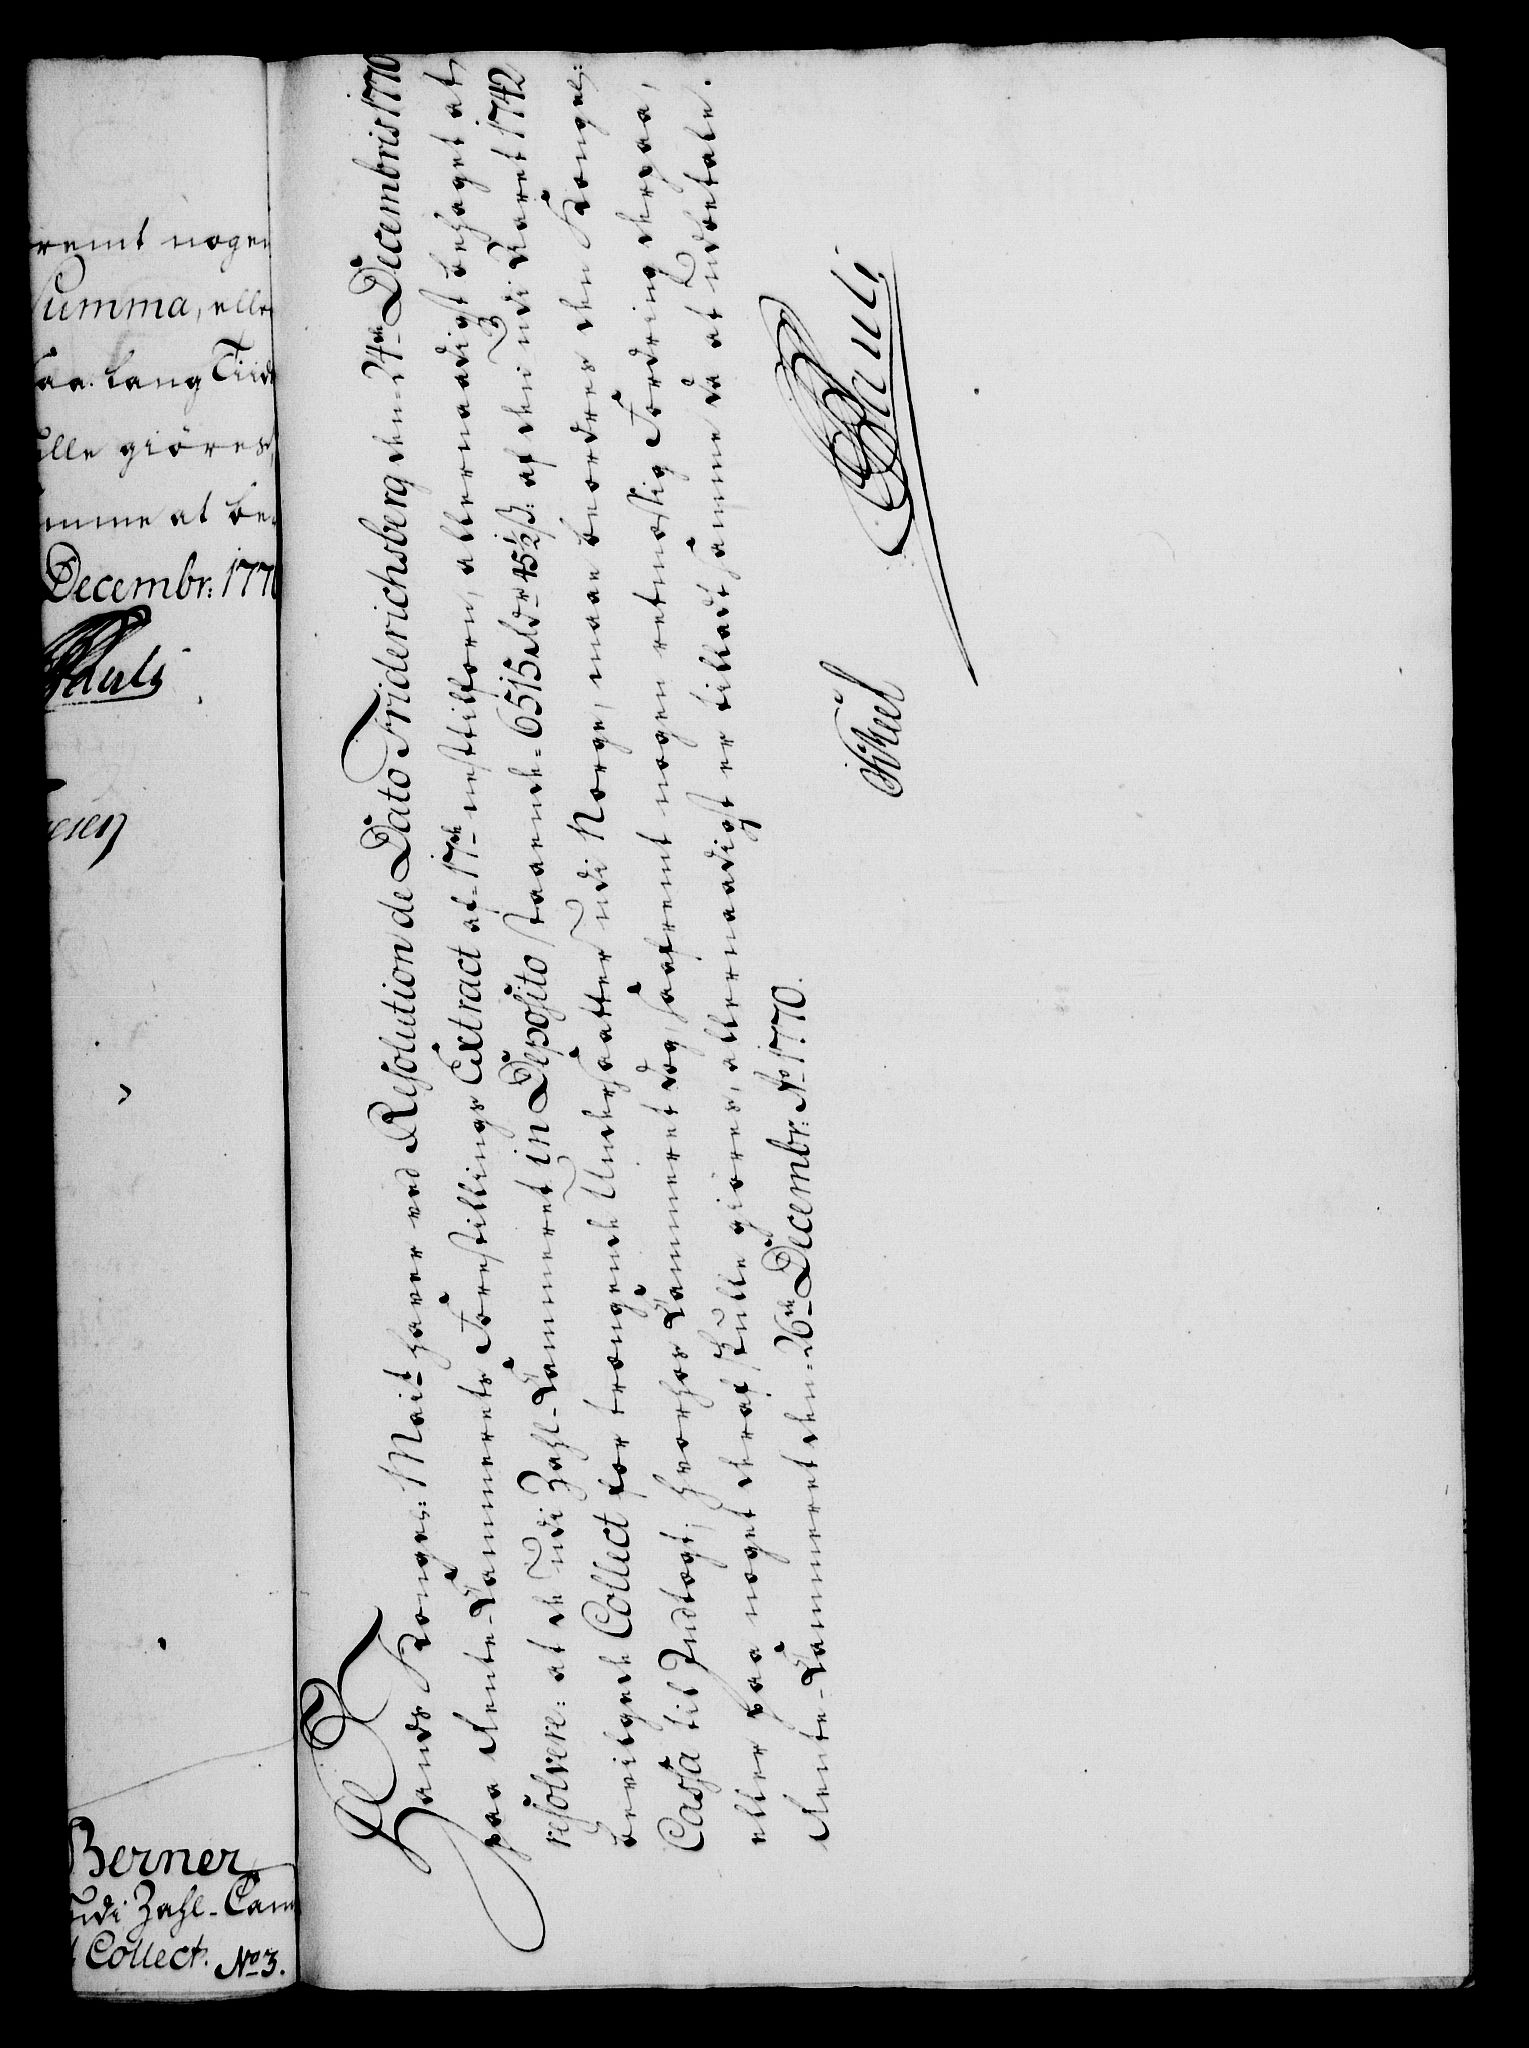 remt nogen
Summa, eller
saa lang Tiid
ulle giöres,
mme at be-
Decembr: 1770
Pauli
esen
Berner
udi Zahl-Cam
Collect. No 3.
Hands Kongel: Mait. haver ved Resolution de Dato Friderichsberg den 24de Decembris 1770
paa Rente-Cammerets Forestillings Extract af 17de nestilforn, allernaadigst behaget at
resolvere: at de udi Zahl-Cammeret in Deposito staaende 6515 rdr 45½ ß: af den udi Aaret 1742
bevilgede Collect for trængende Undersaatter udi Norge, maae beordres den Kongel:
Cassa til Indtægt, hvorhos Cammeret dog, saafremt nogen retmæstig Fordring derpaa,
eller paa noget deraf skulle giöres, allernaadigst er tilladt samme da at udbetale.
Rente-Cammeret den 26de Decembr: Ao 1770.
Pauli